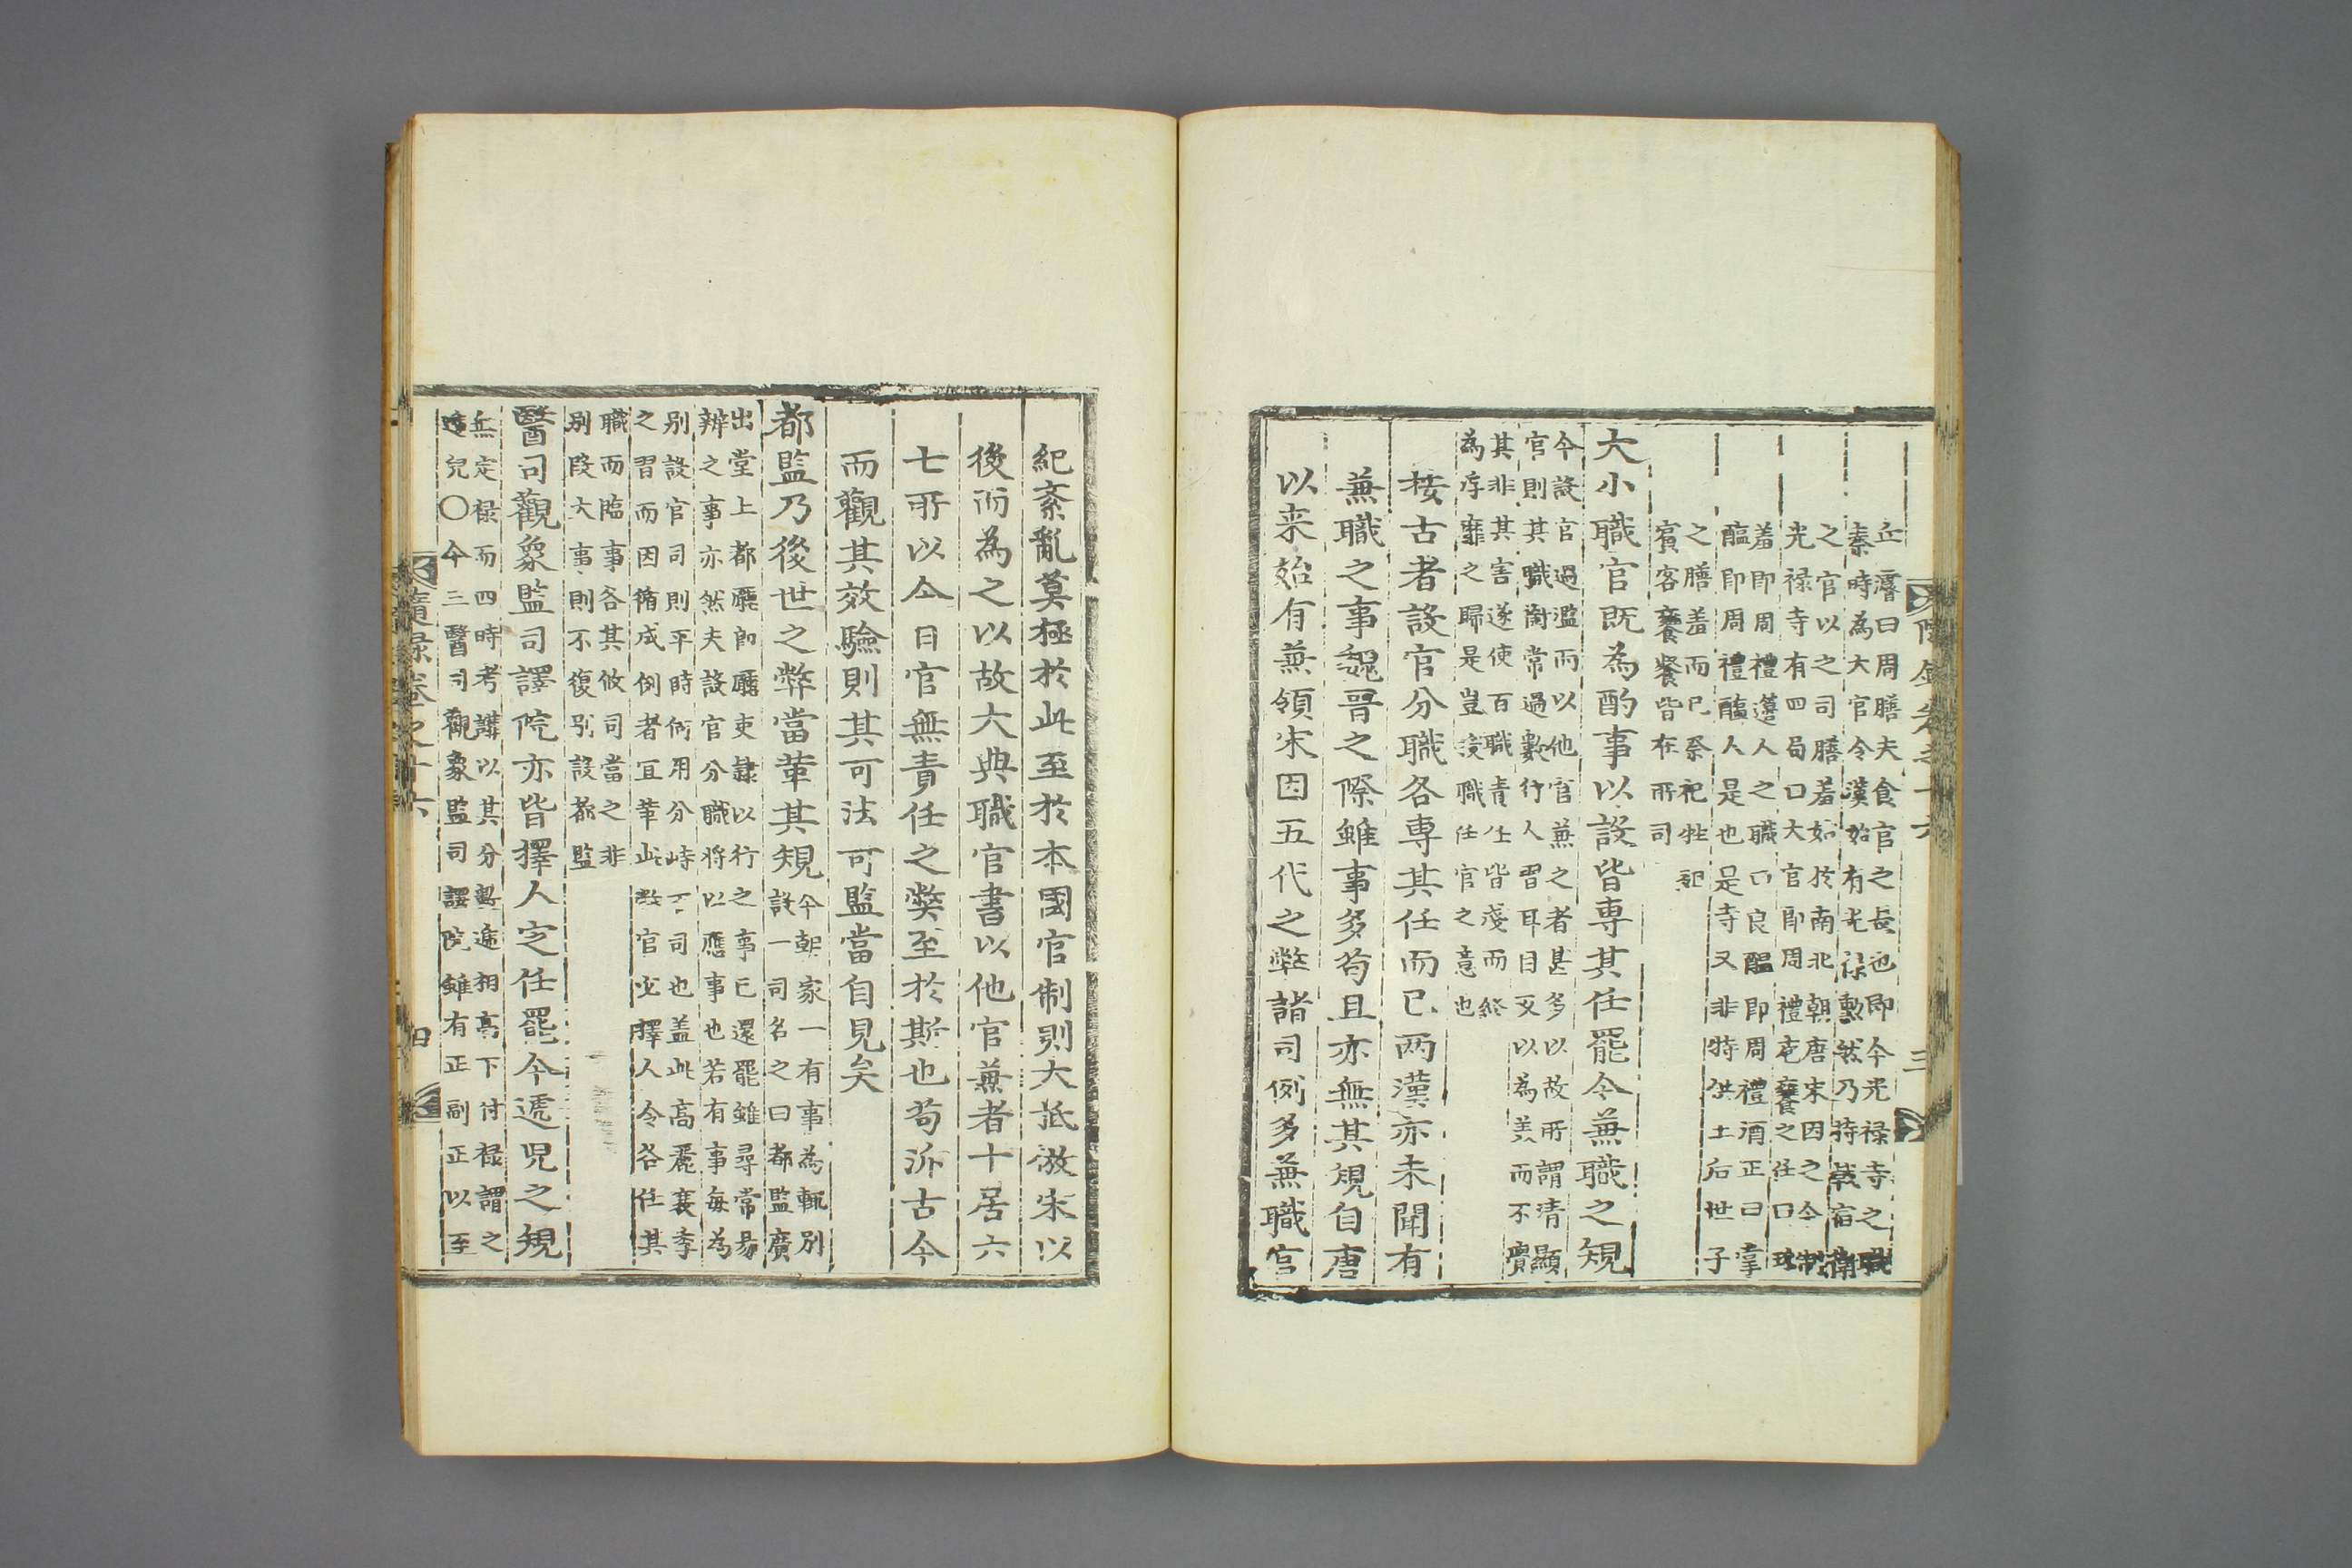 丘濬曰周膳夫食官之長也即今光禄寺之職
秦時為大官令漢始有光禄勳然乃特載宿衛
之官以之司膳羞始於南北朝唐宋因之今制
光禄寺有四局曰大官即周禮庖饔之任曰珎
羞即周禮籩人之職曰良醞即周禮酒正曰掌
醢即周禮醢人是也是寺又非特供土后世子
之膳羞而已祭祀牲
賓客饔餐皆在所司
大小職官既為酌事以設皆専其任罷令兼職之規
今設官過濫而以他官兼之者甚多以故所謂清顯
官則其職閑常過數行人習耳目又以為美而不實
其非其害遂使百職責任皆廢而終
為浮靡之歸是豈設職任官之意也
按古者設官分職各専其任而已两漢亦未聞有
兼職之事魏晋之際雖事多苟且亦無其規自唐
以来始有兼領宋因五代之弊諸司例多兼職官
紀紊亂莫極於此至於本國官制則大抵倣宋以
後而為之以故大典職官書以他官兼者十居六
七所以今日官無責任之弊至於斯也苟泝古今
而觀其效驗則其可法可監當自見矣
都監乃後世之弊當革其規
今朝家一有事為輒別
設一司名之曰都監廣
出堂上都廳郎廳吏隷以行之事已還罷雖尋常易
辨之事亦然夫設官分職將以應事也若有事每為
别設官司則平時何用分峙百司也盖此高麗衰季
之習而因循成例者宜革此設官必擇人令各任其
職而臨事各其攸司當之非
别段大事則不復別設都監
醫司觀象監司譯院亦皆擇人定任罷今遞兒之規
無定禄而四時考講以其分數遞相高下付禄謂之
遞兒〇今三醫司觀象監司譯院雖有正副正以至